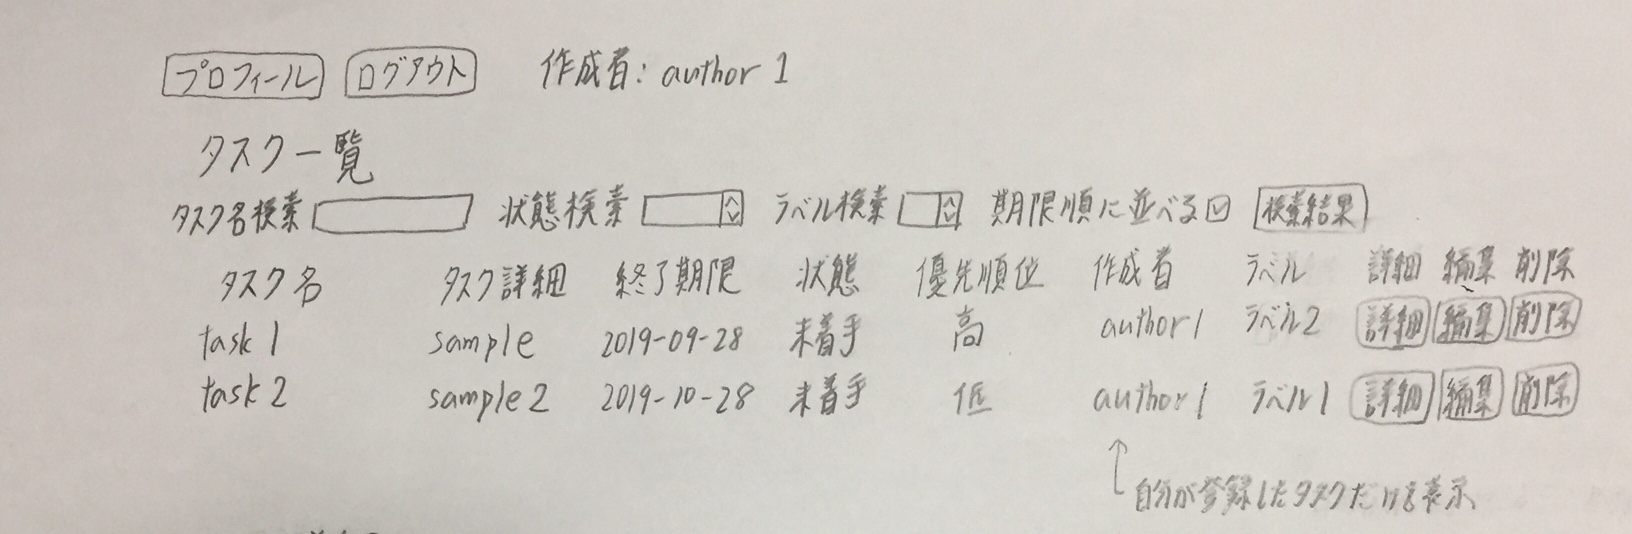 プロフィール ログアウト 作成者: author 1
タスク一覧
タスク名検索 状態検索 ラベル検索 期限順に並べる 検索結果
タスク名 タスク詳細 終了期限 状態 優先順位 作成者 ラベル 詳細 編集 削除
task 1 sample 2019-09-28 未着手 高 author1 ラベル2 詳細 編集 削除
task 2 sample 2 2019-10-28 未着手 低 author1 ラベル1 詳細 編集 削除
自分が登録したタスクだけを表示